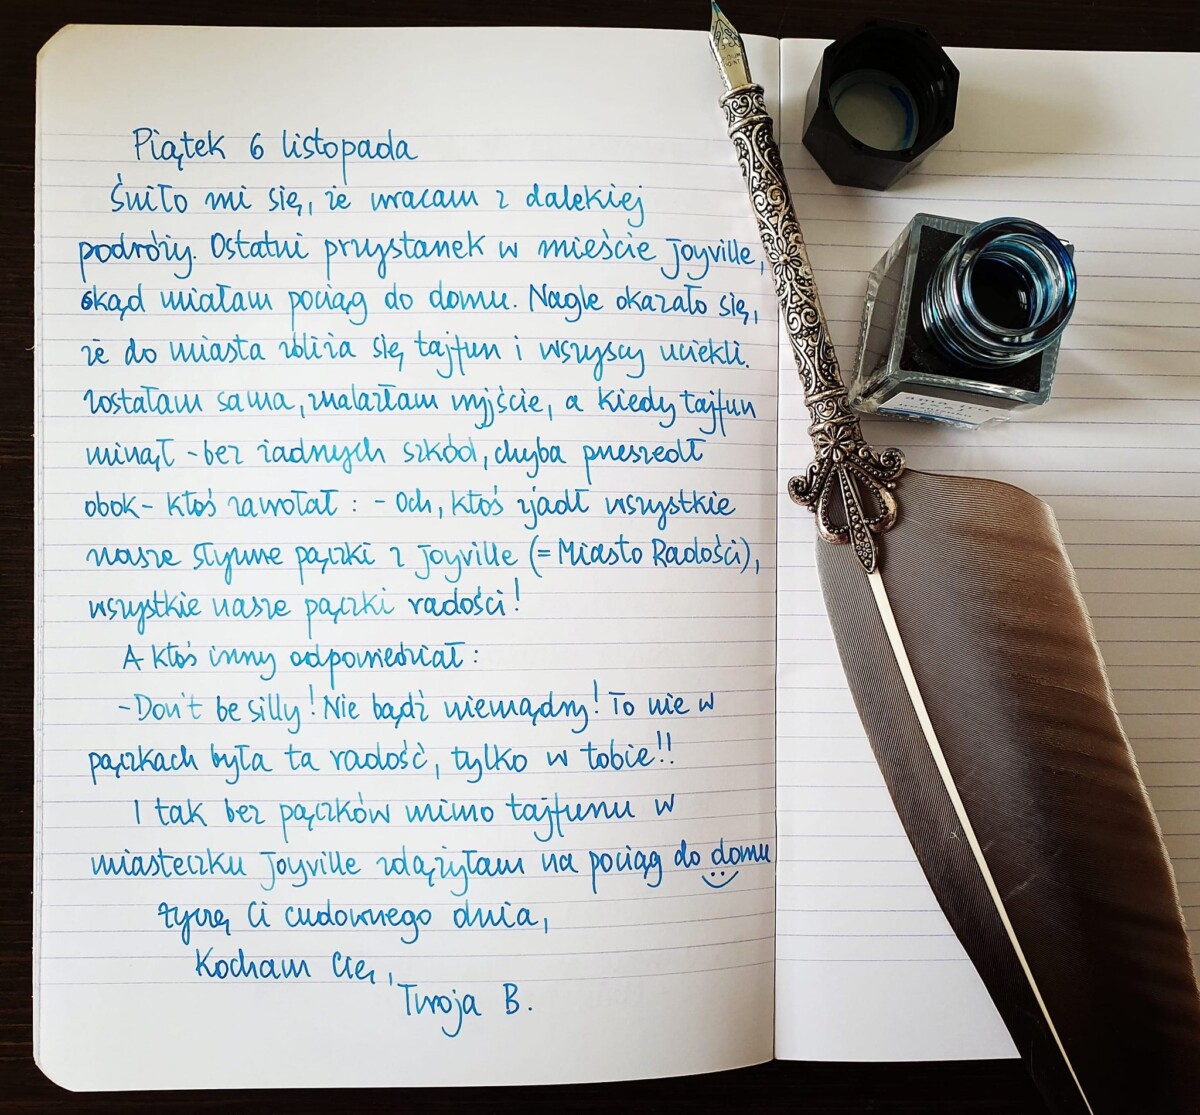 Piątek 6 listopada
Śniło mi się, że wracam z dalekiej
podróży. Ostatni przystanek w mieście Joyville,
skąd miałam pociąg do domu. Nagle okazało się,
że do miasta zbliża się tajfun i wszyscy uciekli.
Zostałam sama, znalazłam wyjście, a kiedy tajfun
minął - bez żadnych szkód, chyba przeszedł
obok - ktoś zawołał: - Och, ktoś zjadł wszystkie
nasze słynne pączki z Joyville (= Miasto Radości),
wszystkie nasze pączki radości!
A ktoś inny odpowiedział:
- Don't be silly! Nie bądź niemądry! To nie w
pączkach była ta radość, tylko w tobie!!
I tak bez pączków mimo tajfunu w
miasteczku Joyville zdążyłam na pociąg do domu
życzę Ci cudownego dnia,
Kocham Cię,
Twoja B.